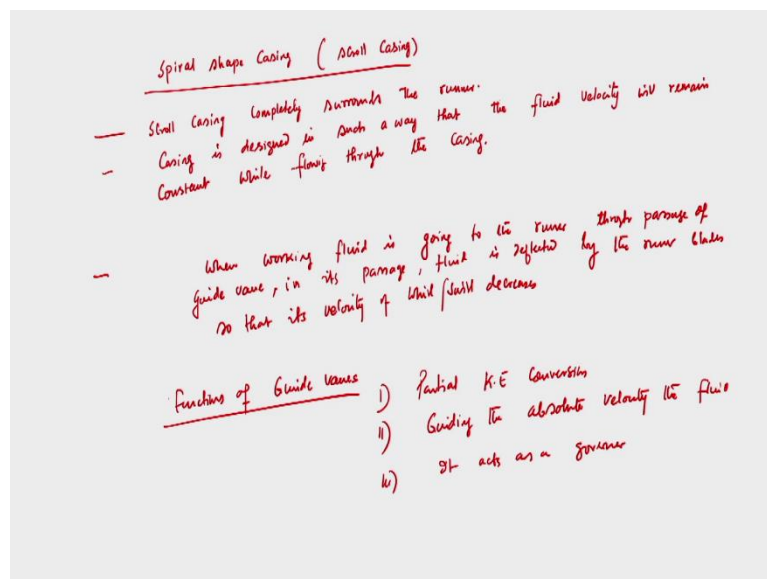 Spiral shape Casing ( scroll Casing)
— Scroll Casing Completely surrounds the runner.
- Casing is designed in such a way that the fluid velocity will remain
Constant while flowing through the Casing.
- When working fluid is going to the runner through passage of
guide vane, in its passage, fluid is deflected by the runner blades
so that its velocity of whirl decreases
Functions of Guide vanes I) Partial K.E Conversion
II) Guiding the absolute velocity the fluid
It acts as a governer